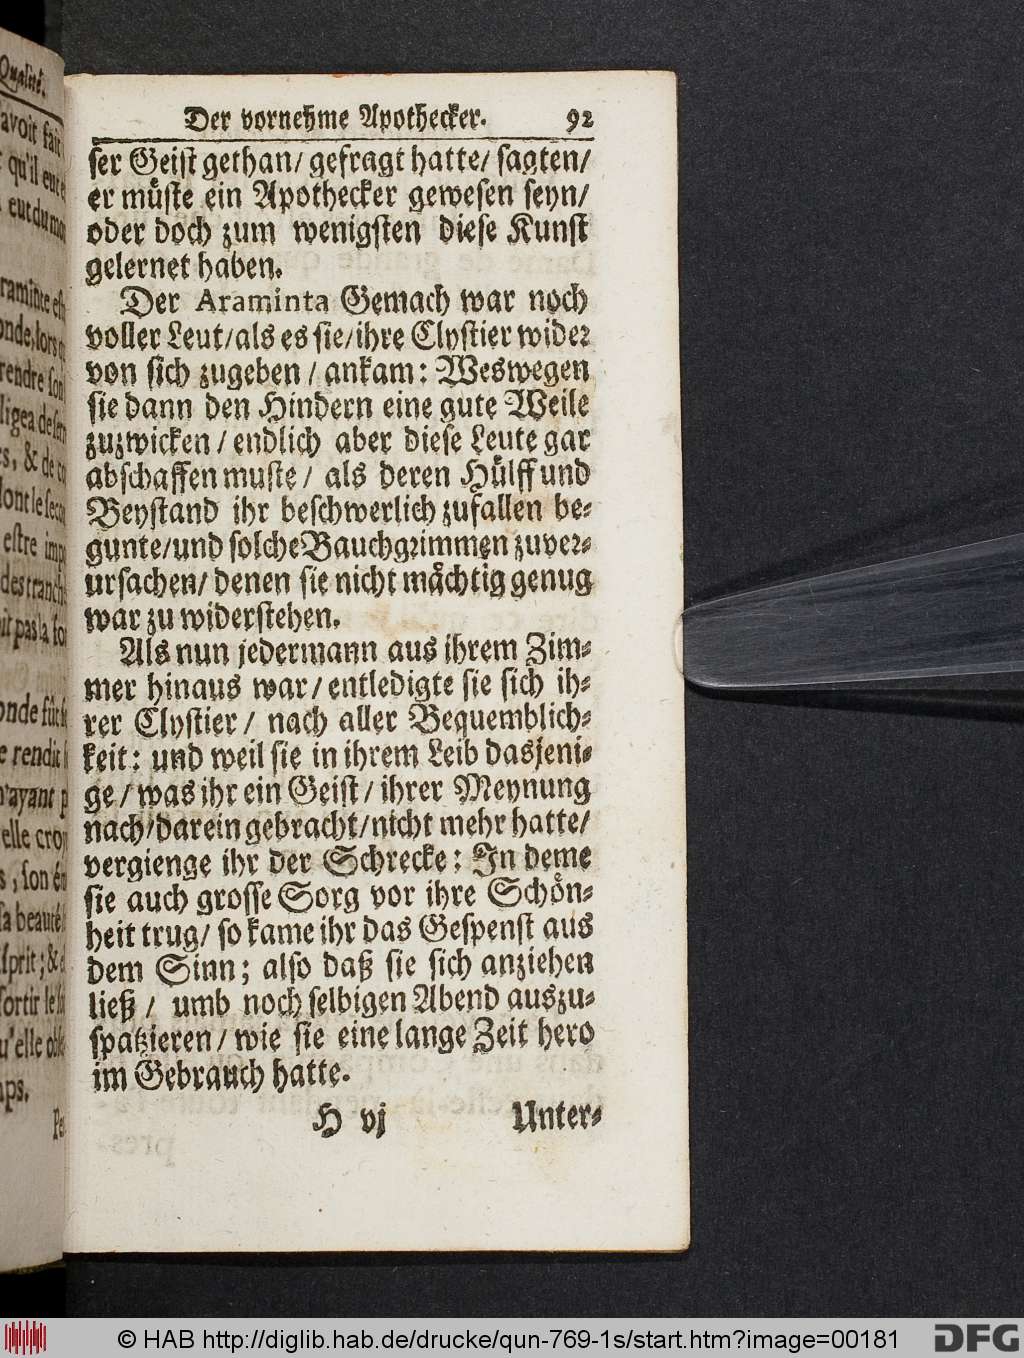 Qualité.
avoit fait
qu'il eut
eut du
Der vornehme Apothecker. 92
ser Geist gethan/ gefragt hatte/ sagten/
er müste ein Apothecker gewesen seyn/
oder doch zum wenigsten diese Kunst
gelernet haben.
Der Araminta Gemach war noch
voller Leut/als es sie/ihre Clystier wider
von sich zugeben / ankam: Weswegen
sie dann den Hindern eine gute Weile
zuzwicken / endlich aber diese Leute gar
abschaffen muste / als deren Hülff und
Beystand ihr beschwerlich zufallen be-
gunte/und solche Bauchgrimmen zuver-
ursachen/ denen sie nicht mächtig genug
war zu widerstehen.
Als nun jedermann aus ihrem Zim-
mer hinaus war / entledigte sie sich ih-
rer Clystier / nach aller Bequemblich-
keit: und weil sie in ihrem Leib dasjeni-
ge / was ihr ein Geist / ihrer Meynung
nach/darein gebracht/nicht mehr hatte/
vergienge ihr der Schrecke: In deme
sie auch grosse Sorg vor ihre Schön-
heit trug/ so kame ihr das Gespenst aus
dem Sinn; also daß sie sich anziehen
ließ / umb noch selbigen Abend auszu-
spatzieren / wie sie eine lange Zeit hero
im Gebrauch hatte.
H vj Unter-
© HAB http://diglib.hab.de/drucke/qun-769-1s/start.htm?image=00181
DFG